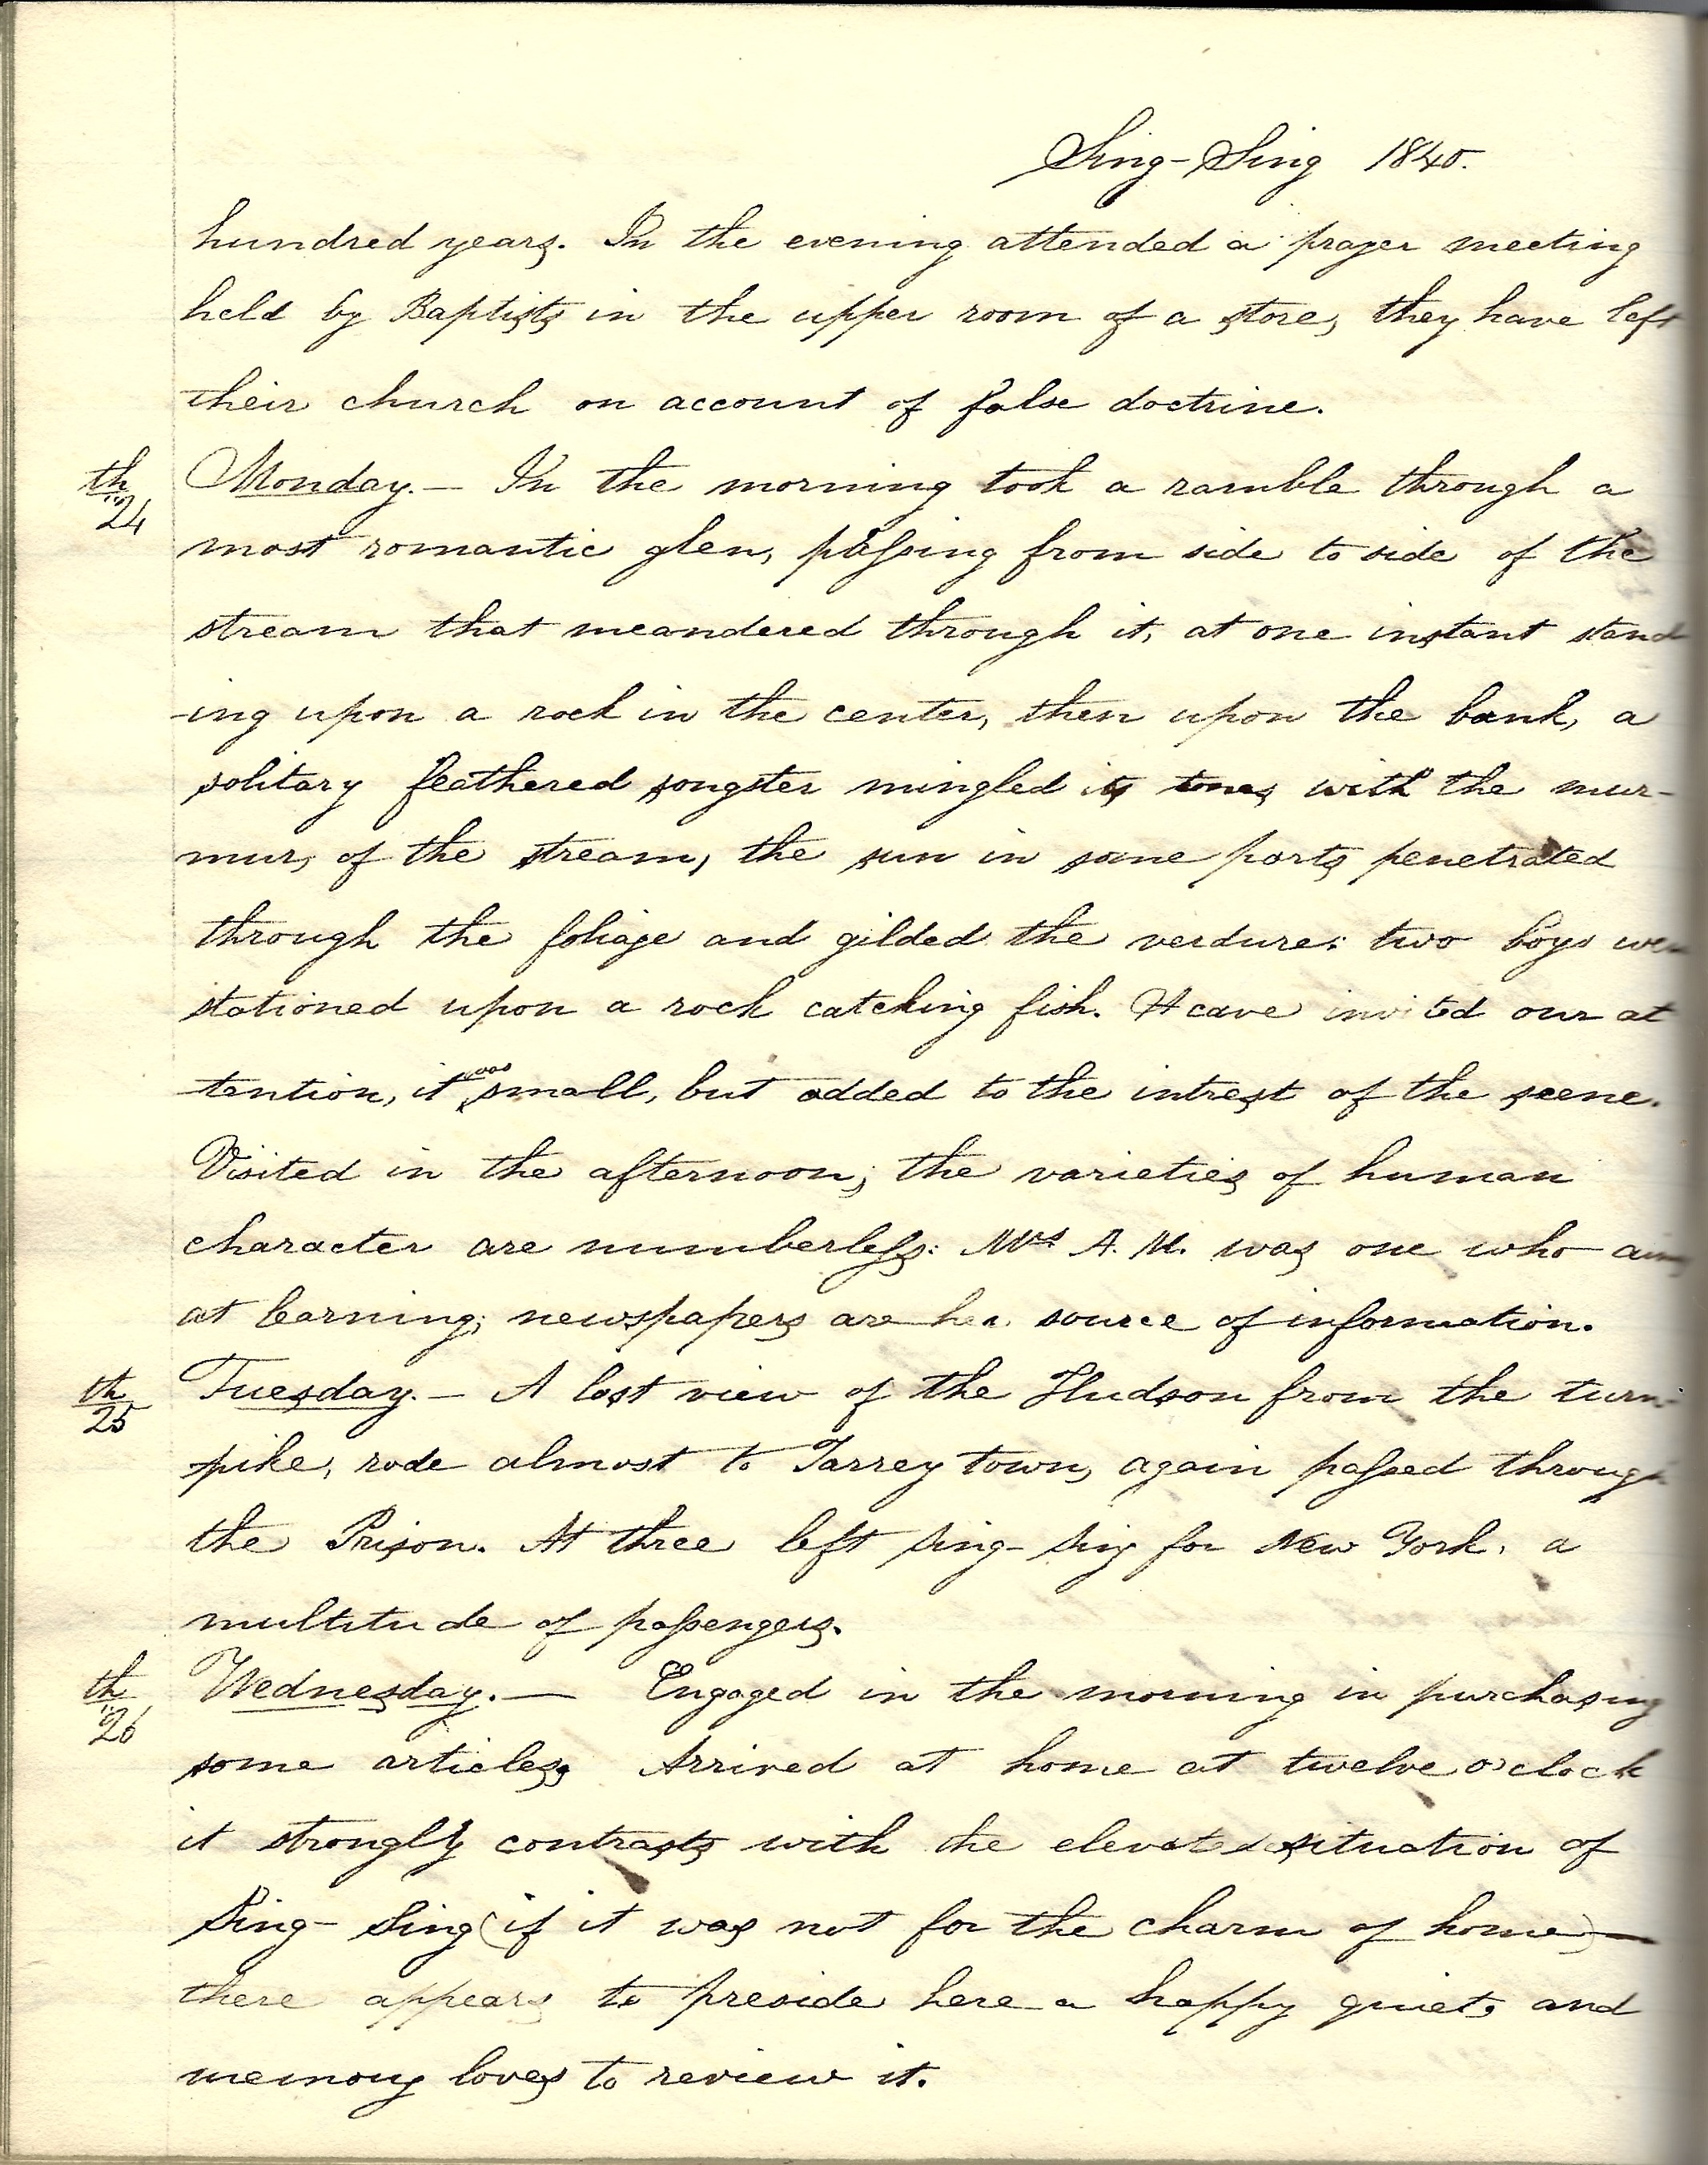 Sing-Sing 1840.
hundred years. In the evening attended a prayer meeting
held by Baptists in the upper room of a store, they have left
their church on account of false doctrine.
24th Monday.— In the morning took a ramble through a
most romantic glen, passing from side to side of the
stream that meandered through it, at one instant stand
-ing upon a rock in the center, then upon the bank, a
solitary feathered songster mingled its tones with the mur-
mur, of the stream, the sun in some parts penetrated
through the foliage and gilded the verdure: two boys were
stationed upon a rock catching fish. A cave invited our at
tention, it was small, but added to the intrest of the scene.
Visited in the afternoon; the varieties of human
character are numberless: Mrs A. M. was one who aims
at learning; newspapers are her source of information.
25th Tuesday.— A last view of the Hudson from the turn-
pike, rode almost to Tarrey town, again passed through
the Prison. At three left Sing-Sing for New York, a
multitude of passengers.
26th Wednesday.— Engaged in the morning in purchasing
some articles, Arrived at home at twelve o'clock
it strongly contrasts with the elevated situation of
Sing-Sing (if it was not for the charm of home)—
there appears to preside here a happy quiet, and
memory loves to review it.